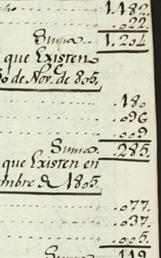 ho ........ 1.182.
........ .022.
Suma. 1.204
que Existen
30 de Nov.e de 805.
........ .180.
........ .096
........ .009.
Suma. .285.
que Existen en
embre de 1805.
........ .077.
........ .037.
........ .005.
Suma .119